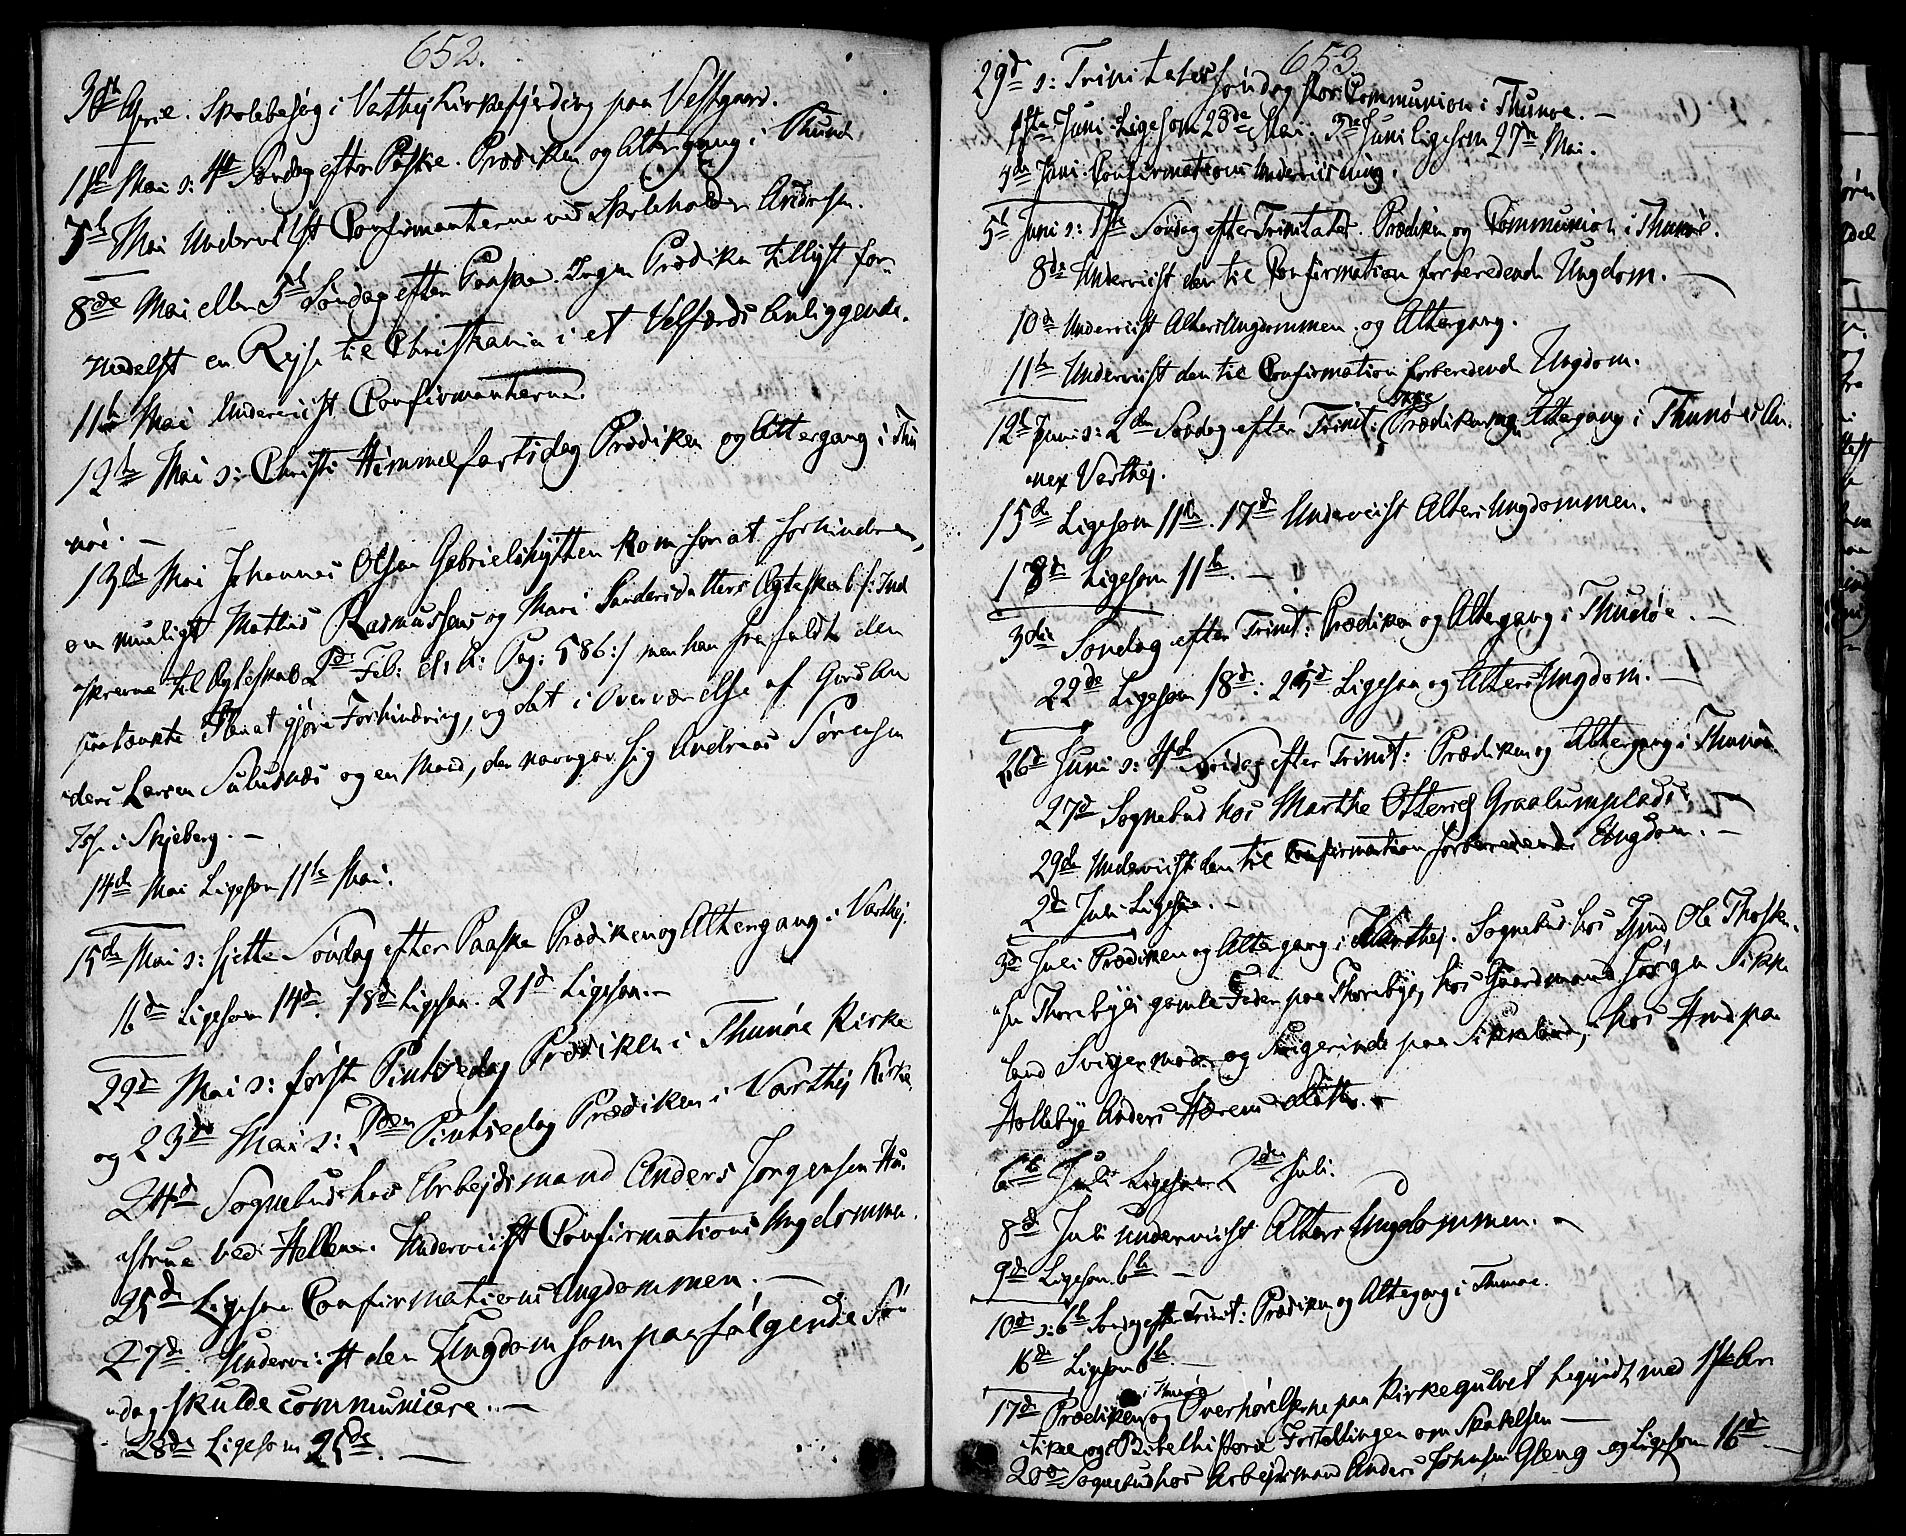 652.
30th April. Skolebesøg i Vatheij Kirkefjerding paa Vestgaard.
1ste Mai s: 4de Søndag efter Paaske. Prædiken og Altergang i Thunø
7de Mai Underviist Confirmanterne ved Skoleholder Andersen.
8de Mai eller 5te Søndag efter Paaske. Ingen Prædiken tillyst for-
medelst en Rejse til Christiania i et Velfærds Anliggende.
11te Mai Underviist Confirmanterne.
12te Mai s: Christi Himmelfartsdag Prædiken og Altergang i Thu
nöe. —
13de Mai Johannes Olsen Gabrielshytten kom for at forhindre,
om muligt Mathis Rasmussens og Mari Sandersdatters Ægteskab |: Ind
skrevne til Ægteskab 2de Feb: Pag: 586:/ men han frafaldt den
paatænkte Plan at gjøre Forhindring, og det i Overværelse af Gaard An
ders Larsen og en Mand, der navngav sig Andreas Sørensen
i Skjeberg. —
14de Mai Ligesom 11te Mai.
15de Mai s: sjette Søndag efter Paaske Prædiken og Altergang i Varthej.
16de Ligesom 14de. 18de Ligesom. 21de Ligesom. —
22de Mai s: første Pintsedag Prædiken i Thunøe Kirke
og 23de Mai s: 2den Pintsedag Prædiken i Varthej Kirke
24de Sognebud hos Arbejdsmand Anders Jørgensen Hu-
strue ved Hellene. Underviist Confirmations Ungdommen.
25de Ligesom Confirmations Ungdommen. —
27de. Underviist den Ungdom som paafølgende Sön
dag skulde communicere. —
28de Ligesom 25de. —
653
29de s: Trinitatis Søndag stor Communion i Thunøe. —
1ste Juni Ligesom 28de Mai. 3de Juni ligesom 27de Mai.
4de Juni Confirmations Underviisning.
5te Juni s: 1ste Søndag efter Trinitatis. Prædiken og Communion i Thunøe.
8de Underviist den til Confirmation forberedende Ungdom. —
10de Underviist Alters Ungdommen og Altergang.
11te Underviist den til Confirmation forberedende Ungdom.
12te Juni s: 2den Søndag efter Trinit: Prædiken og Altergang i Thunøes An-
nex Varthej.
15de Ligesom 11te. 17de Underviist Alters Ungdommen.
18de Ligesom 11te. —
3die Søndag efter Trinit: Prædiken og Altergang i Thunøe. —
22de Ligesom 18de: 25de Ligesom og Alters Ungdom. —
26de Juni s: 4de Søndag efter Trinit: Prædiken og Altergang i Thunøe
27de Sognebud hos Marthe Graalumplads. —
29de Underviist den til Confirmation forberedende Ungdom. —
2de Juli Ligesom. —
3de Juli Prædiken og Altergang i Varthej. Sognebud hos Ole
Thorebyes gamle Fader paa Thorebye, hos Gaardmand Jörgen Sikke
land Svigermoder og Svigerinde paa Sikkeland, hos
Hollebye Anders
6te Juli Ligesom 2den Juli.
8de Juli Underviist Alters Ungdommen. —
9de Ligesom 6te. —
10de s: 6te Søndag efter Trinit: Prædiken og Altergang i Thunøe.
16de Ligesom 6te. —
i Thunöe
17de Prædiken og Overhørelserne paa Kirkegulvet begyndt med 1ste Ar
tikel og Bibelhistorie Fortællingen om Skabelsen —
20de Sognebud hos Arbejdsmand Anders Johnsen Gleng og Ligesom 16de. —